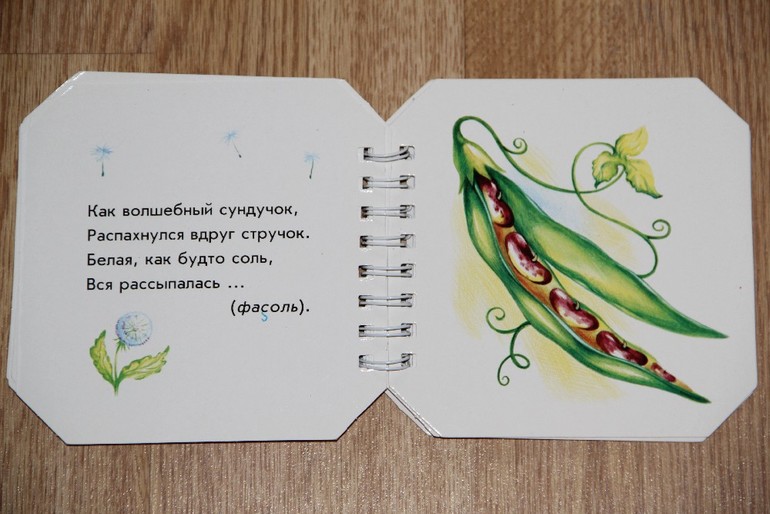 Как волшебный сундучок,
Распахнулся вдруг стручок.
Белая, как будто соль,
Вся рассыпалась ...
(фасоль).